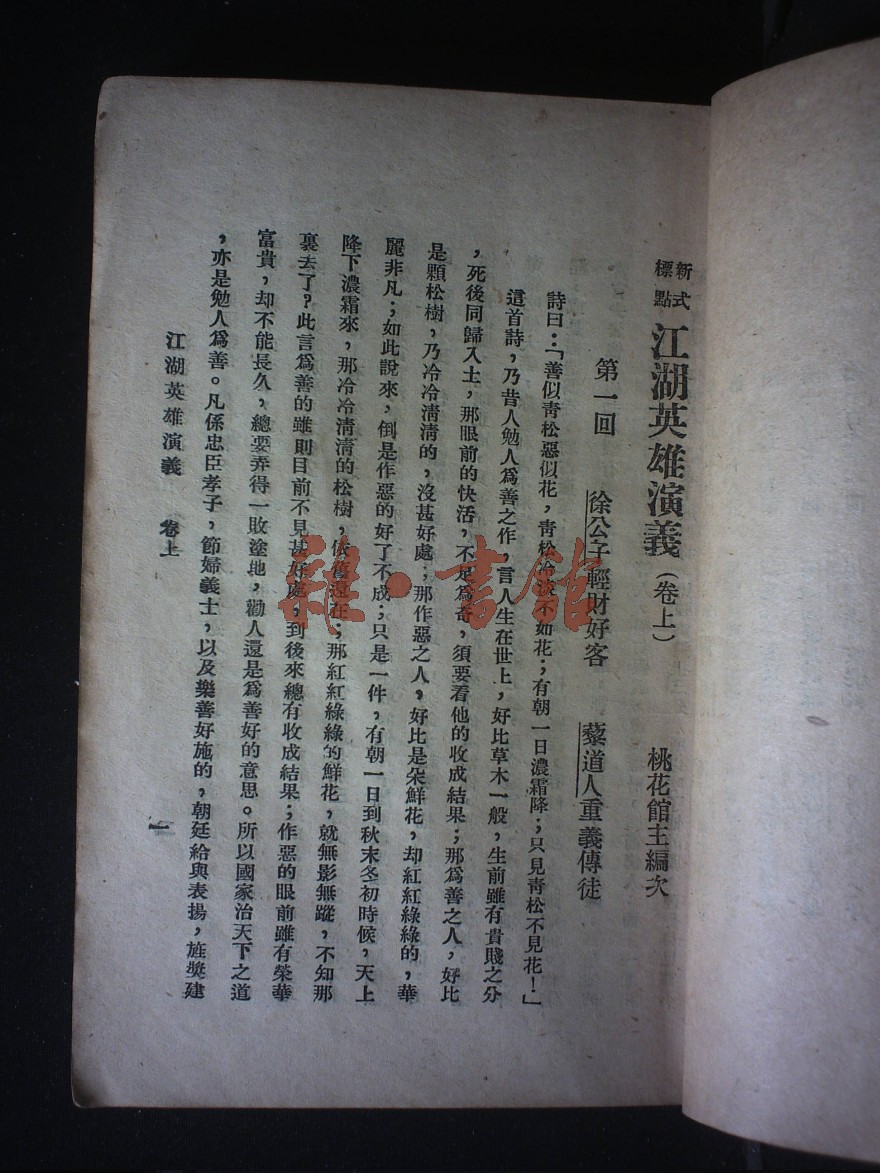 新式標點 江湖英雄演義（卷上） 桃花館主編次
第一回 徐公子輕財好客 藜道人重義傳徒
詩曰：「善似青松惡似花，青松冷淡不如花；有朝一日濃霜降；只見青松不見花！」
這首詩，乃昔人勉人爲善之作，言人生在世上，好比草木一般，生前雖有貴賤之分
，死後同歸入土，那眼前的快活，不足爲奇，須要看他的收成結果；那爲善之人，好比
是顆松樹，乃冷冷清清的，沒甚好處；那作惡之人，好比是朵鮮花，却紅紅綠綠的，華
麗非凡；如此說來，倒是作惡的好了不成；只是一件，有朝一日到秋末冬初時候，天上
降下濃霜來，那冷冷清清的松樹，依舊還在；那紅紅綠綠的鮮花，就無影無蹤，不知那
裏去了？此言爲善的雖則目前不見甚好處，到後來總有收成結果；作惡的眼前雖有榮華
富貴，却不能長久，總要弄得一敗塗地，勸人還是爲善好的意思。所以國家治天下之道
，亦是勉人爲善。凡係忠臣孝子，節婦義士，以及樂善好施的，朝廷給與表揚，旌獎建
江湖英雄演義 卷上 一
雜·書館